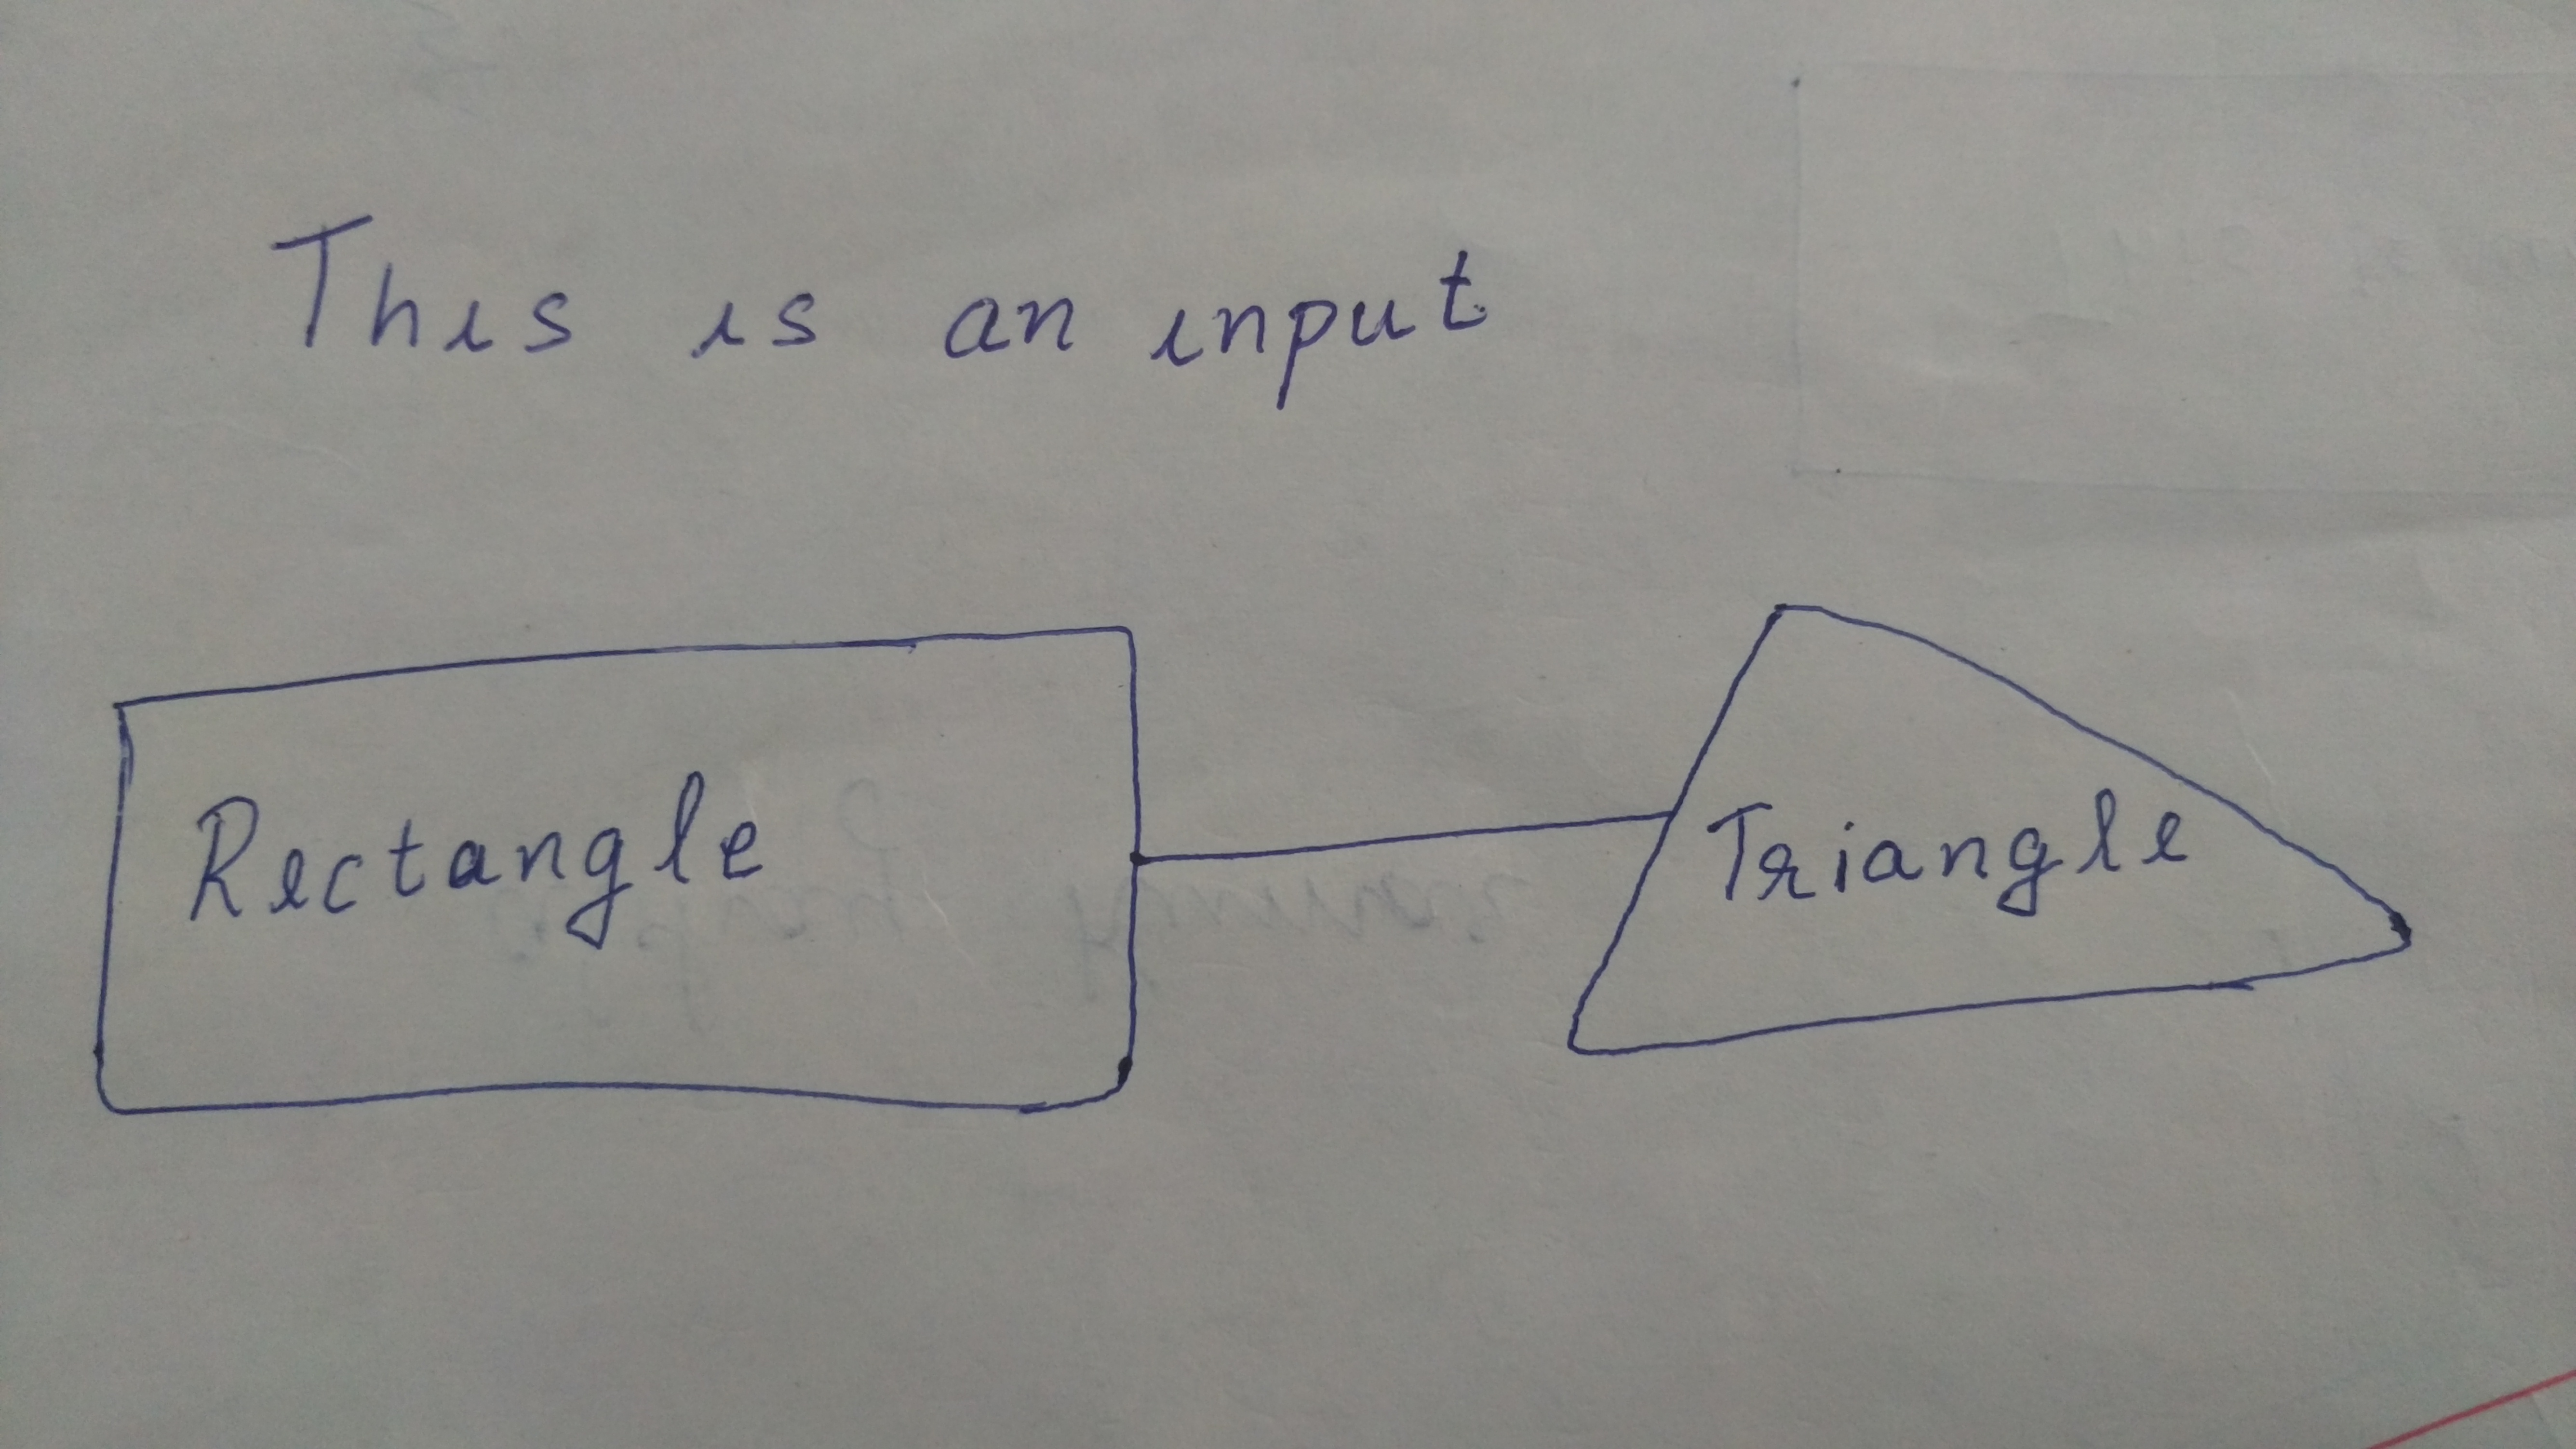 This is an input
Rectangle
Triangle